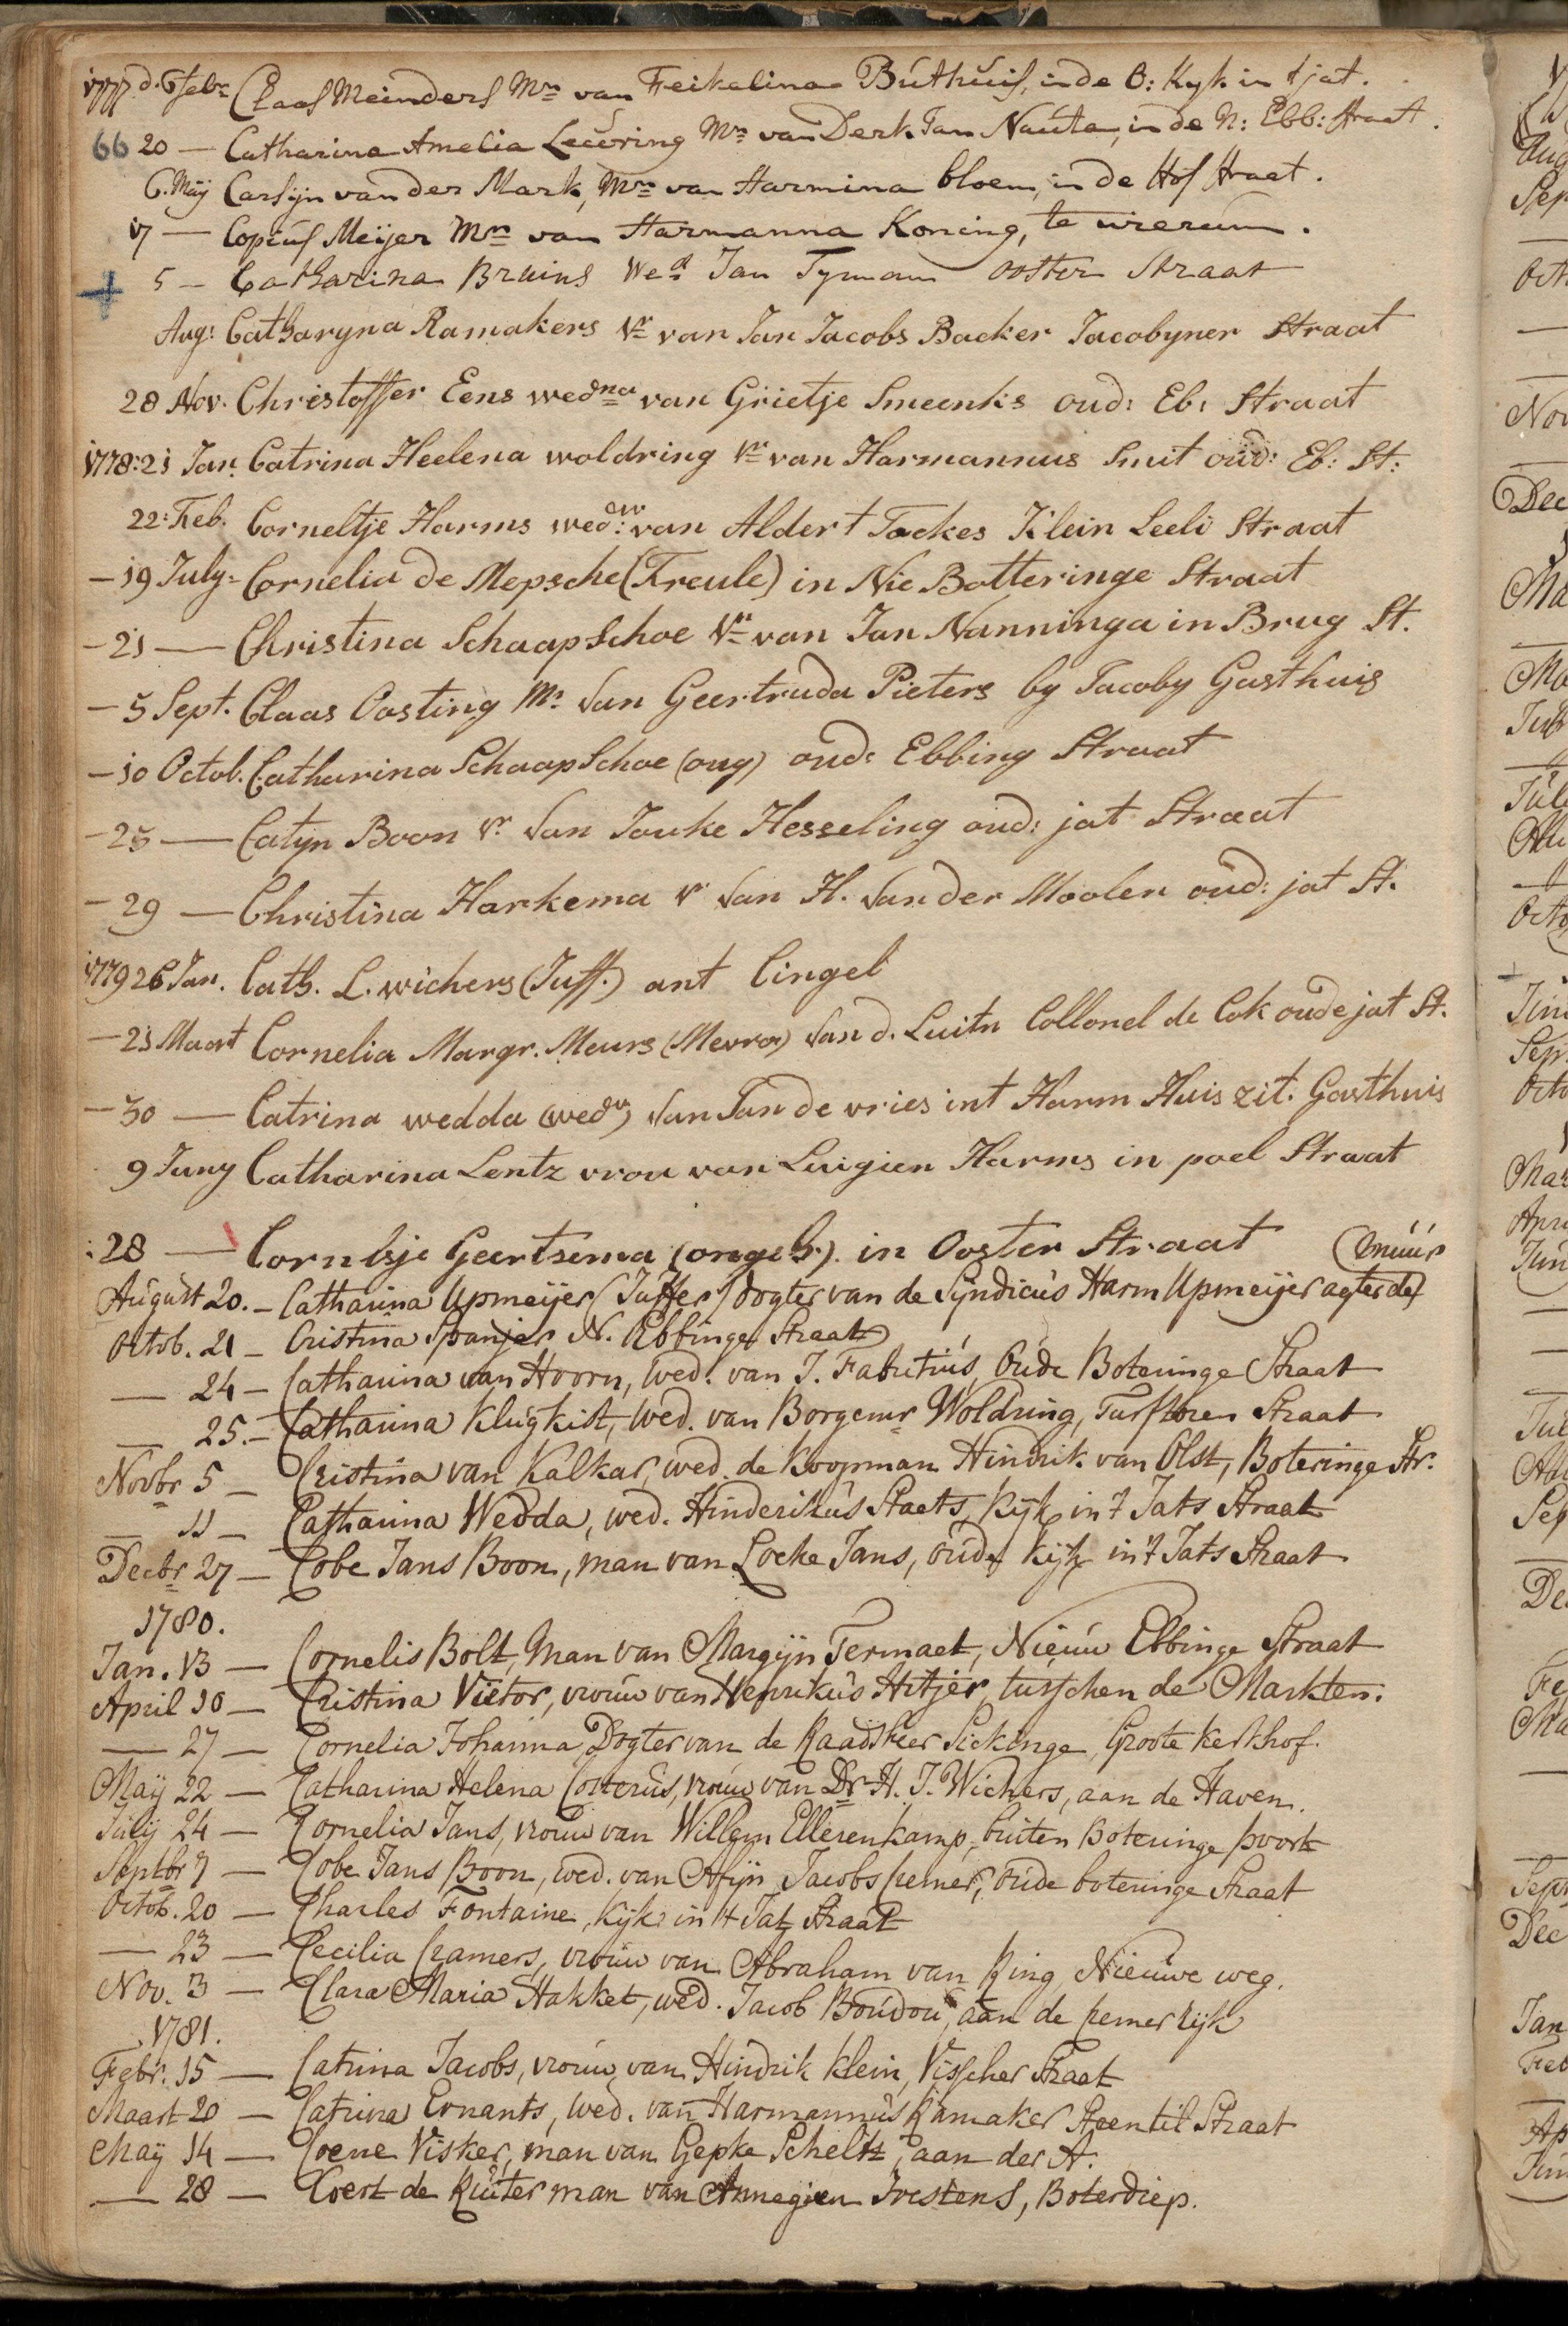 1777 d. 6 febr Claas Meinders Mn van Feikelina Buthuis, in de O: Kyk in t jat.
66 20 — Catharina Amelia Leewring Mn van Derk Jan Nauta, in de N: Ebb: straat.
6. Maÿ Carsyn van der Mark, Mn van Harmina bloem, in de Hof straat.
17 — Copius Meijer Mn van Harmanna Koning, te wierum.
5 — Catharina Bruins Wed Jan Tymam ooster Straat
Aug: Catharyna Ramakers Vr van Jan Jacobs Backer Jacobyner Straat
28 Nov. Christoffer Eens wedna van Grietje Smeenks oud: Eb: Straat
1778: 21 Jan. Catrina Heelena woldring Vr van Harmannus Smit oud: Eb: St:
22: Feb. Corneltje Harms wed: van Aldert Tackes Klein Leeli Straat
— 19 July = Cornelia de Mepsche (Freule) in Nie Botteringe Straat
— 21 — Christina Schaapschoe Vr van Jan Nanninga in Brug St.
— 5 Sept. Claas Oosting Mn Van Geertruda Pieters by Jacoby Gasthuis
— 10 Octob. Catharina Schaapschoe (ong) oud: Ebbing Straat
— 25 — Catyn Boon Vr Van Jouke Hesseling oud: jat Straat
— 29 — Christina Harkema Vr Van H. Van der Moolen oud: jat St.
1779 26 Jan. Cath. L. wichers (Juff.) ant Cingel
— 21 Maart Cornelia Margr. Meurs (Mevro) Van d. Luitn Collonel de Cok oude jat St.
— 30 — Catrina wedda (wedu) Van Jan de vries int Harm Huis zit. Gasthuis
9 Juny Catharina Lentz vrou van Luigien Harms in poel Straat
: 28 — Cornelsje Geertsema (ongeh.) in Ooster Straat (muur
August 20. — Catharina Upmeijer (Juffer) dogter van de Syndicus Harm Upmeijer agter de)
Octob. 21 — Cristina Spanjer N. Ebbinge Straat
— 24 — Catharina van Hoorn, wed. van J. Fabritius, Oude Boteringe Straat
— 25. — Catharina Klugkist, wed. van Borgemr Woldring, Turftoren Straat
Novbr 5 — Cristina van Kalkar, wed. de Koopman Hindrik van Olst, Boteringe Str.
— 11 — Catharina Wedda, wed. Hinderikus Staets, Kijk in t Jats Straat
Decbr 27 — Cobe Jans Boon, man van Locke Jans, oude Kijk in t Jats Straat
1780.
Jan. 13 — Cornelis Bolt, Man van Margijn Termaet, Nieuw Ebbinge Straat
April 10 — Cristina Vietor, vrouw van Henrikus Hitjer, tusschen de Markten.
— 27 — Cornelia Johanna, Dogter van de Raadsheer Sickinge, Groote Kerkhof.
Maÿ 22 — Catharina Helena Costerus, vrouw van Dr H. J. Wichers, aan de Haven.
Julij 24 — Cornelia Jans, vrouw van Willem Ellerenkamp, buiten Boteringe poort
Septbr 7 — Cobe Jans Boon, wed. van Afijn Jacobs Cremer, oude boteringe Straat
Octob. 20 — Charles Fontaine, Kijk in 't Jatz Straat
— 23 — Cecilia Cramers, vrouw van Abraham van Ring, Nieuwe weg.
Nov. 3 — Clara Maria Hakket, wed. Jacob Boudou, aan de Cremer rijk
1781.
Febr. 15 — Catrina Jacobs, vrouw van Hindrik Klein, Visscher Straat
Maart 20 — Catrina Ernants, wed. van Harmannus Ramaker Steentil Straat
Maÿ 14 — Coene Visker, man van Gepke Scheltz, aan der A.
— 28 — Coert de Ruiter man van Annegien Joestens, Boterdiep.